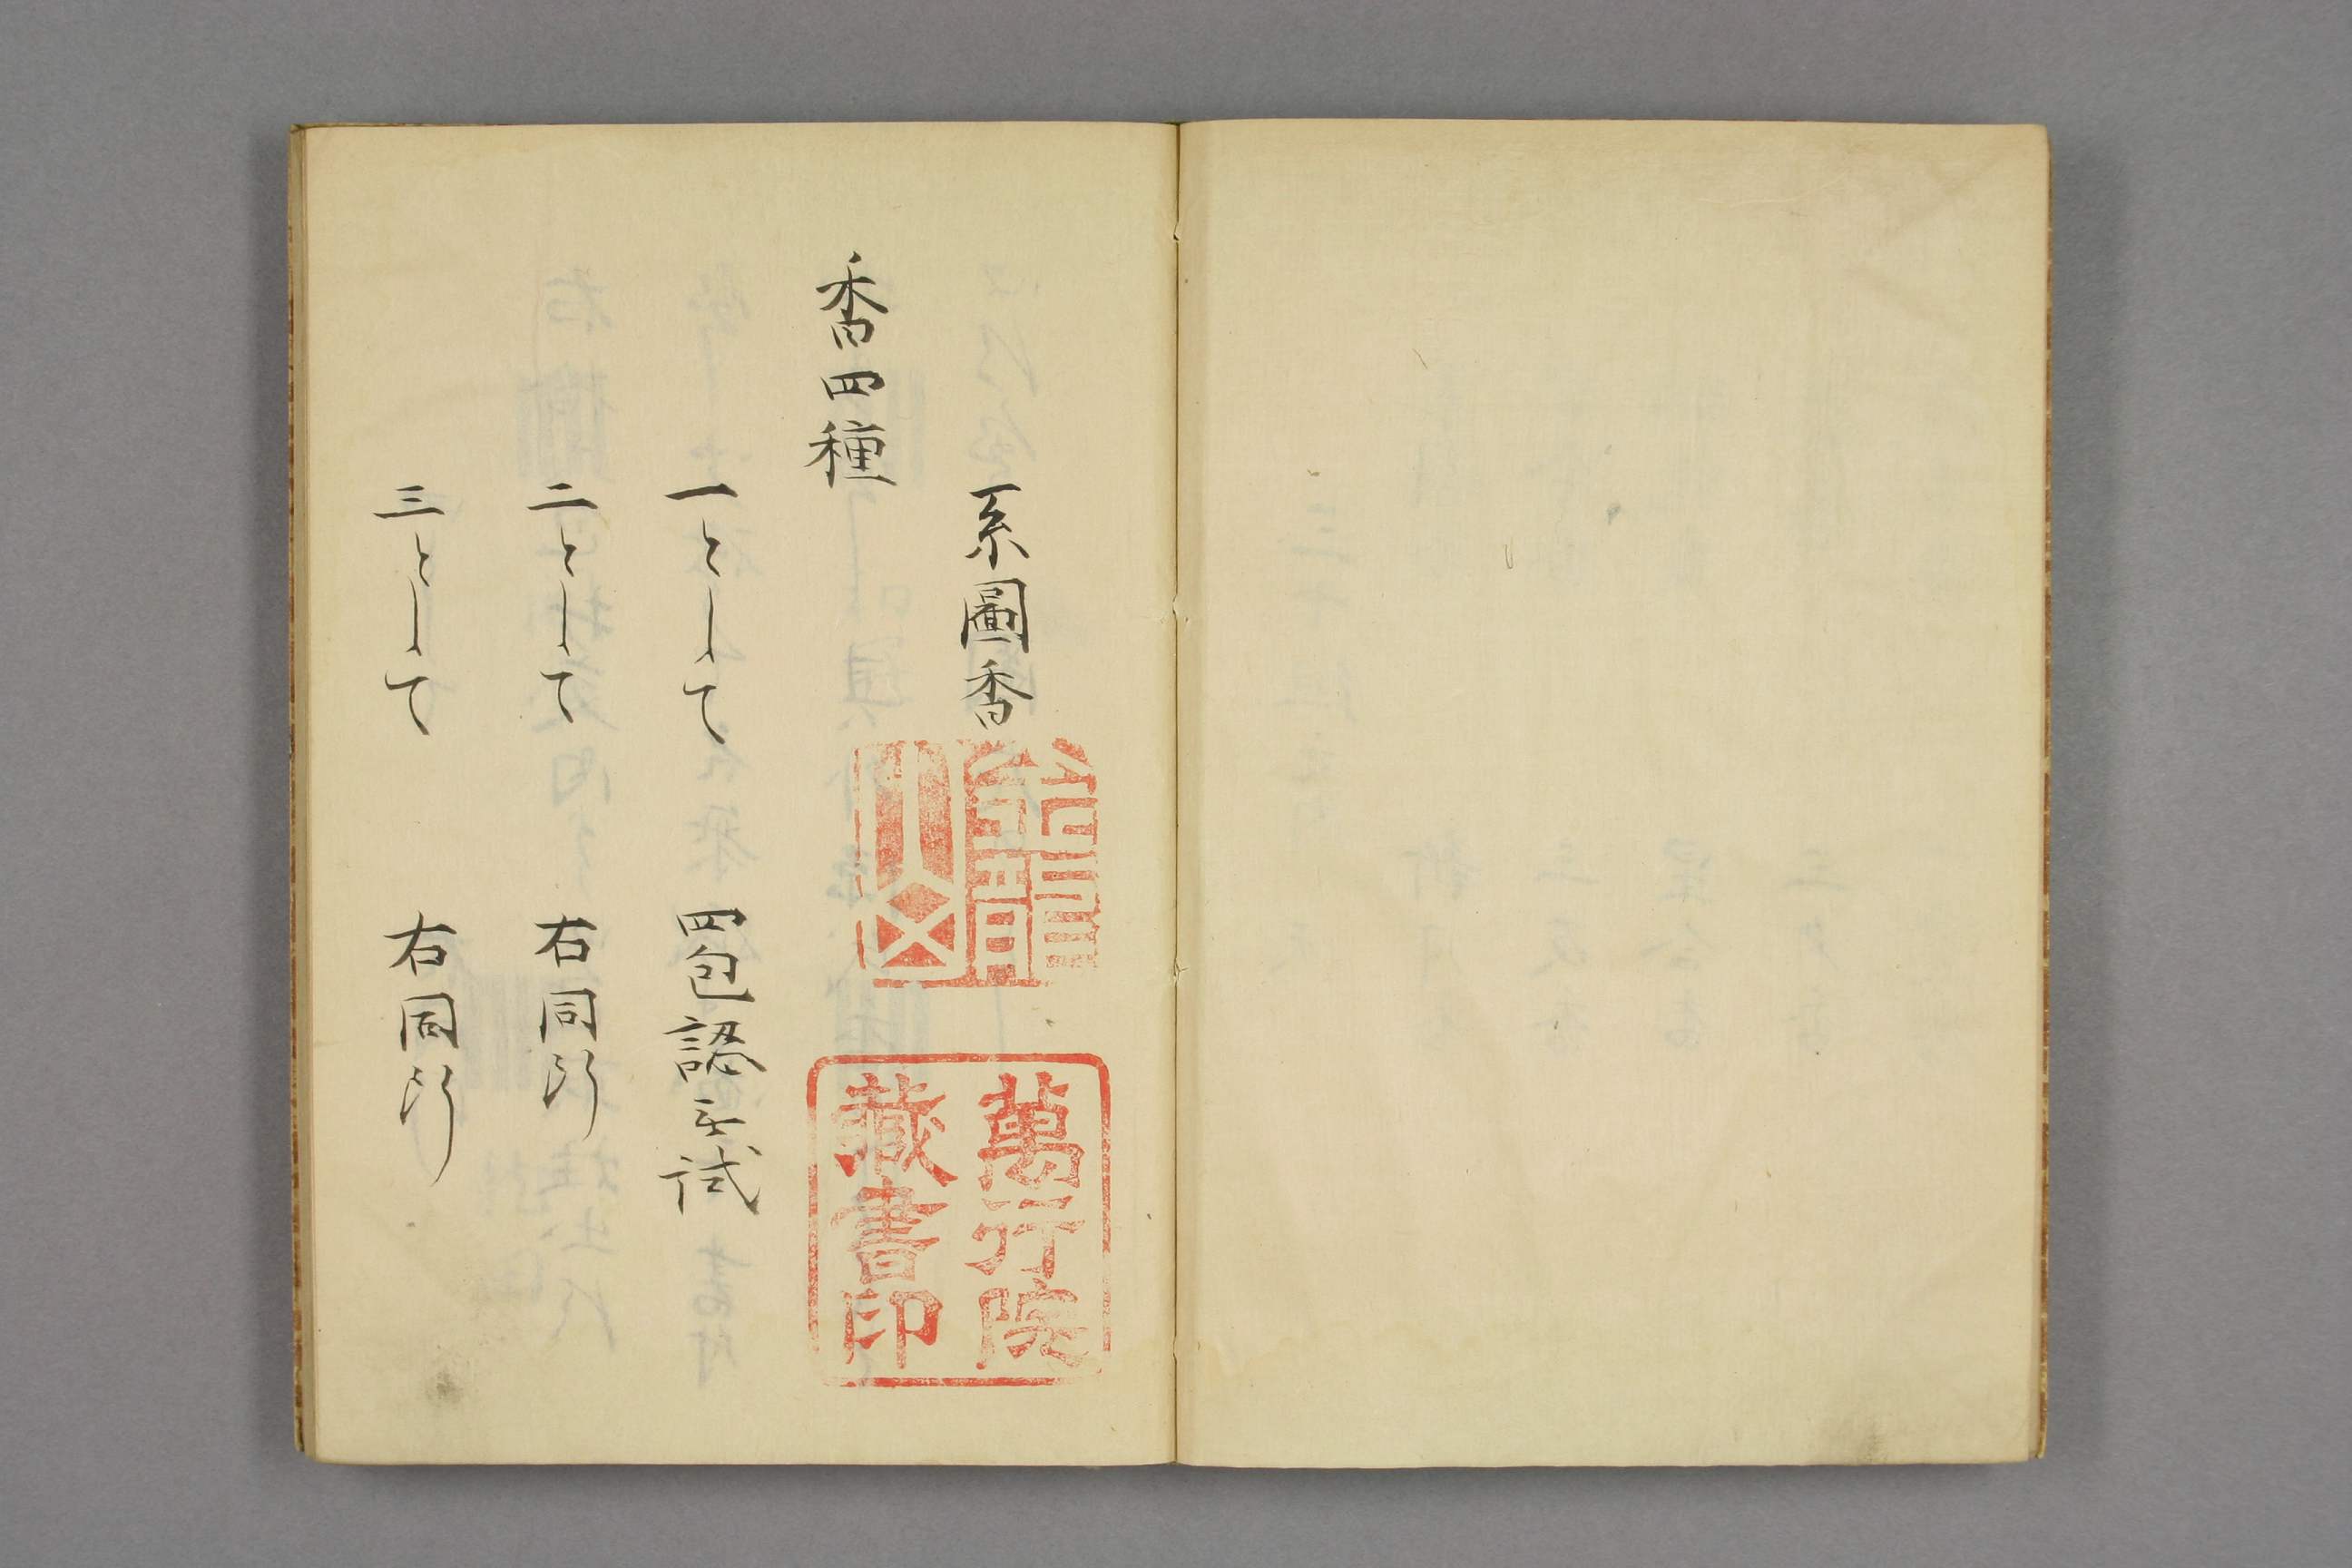 系圖香
香四種
一として 四包認無試
二として 右同断
三として 右同断
萬行院
藏書印